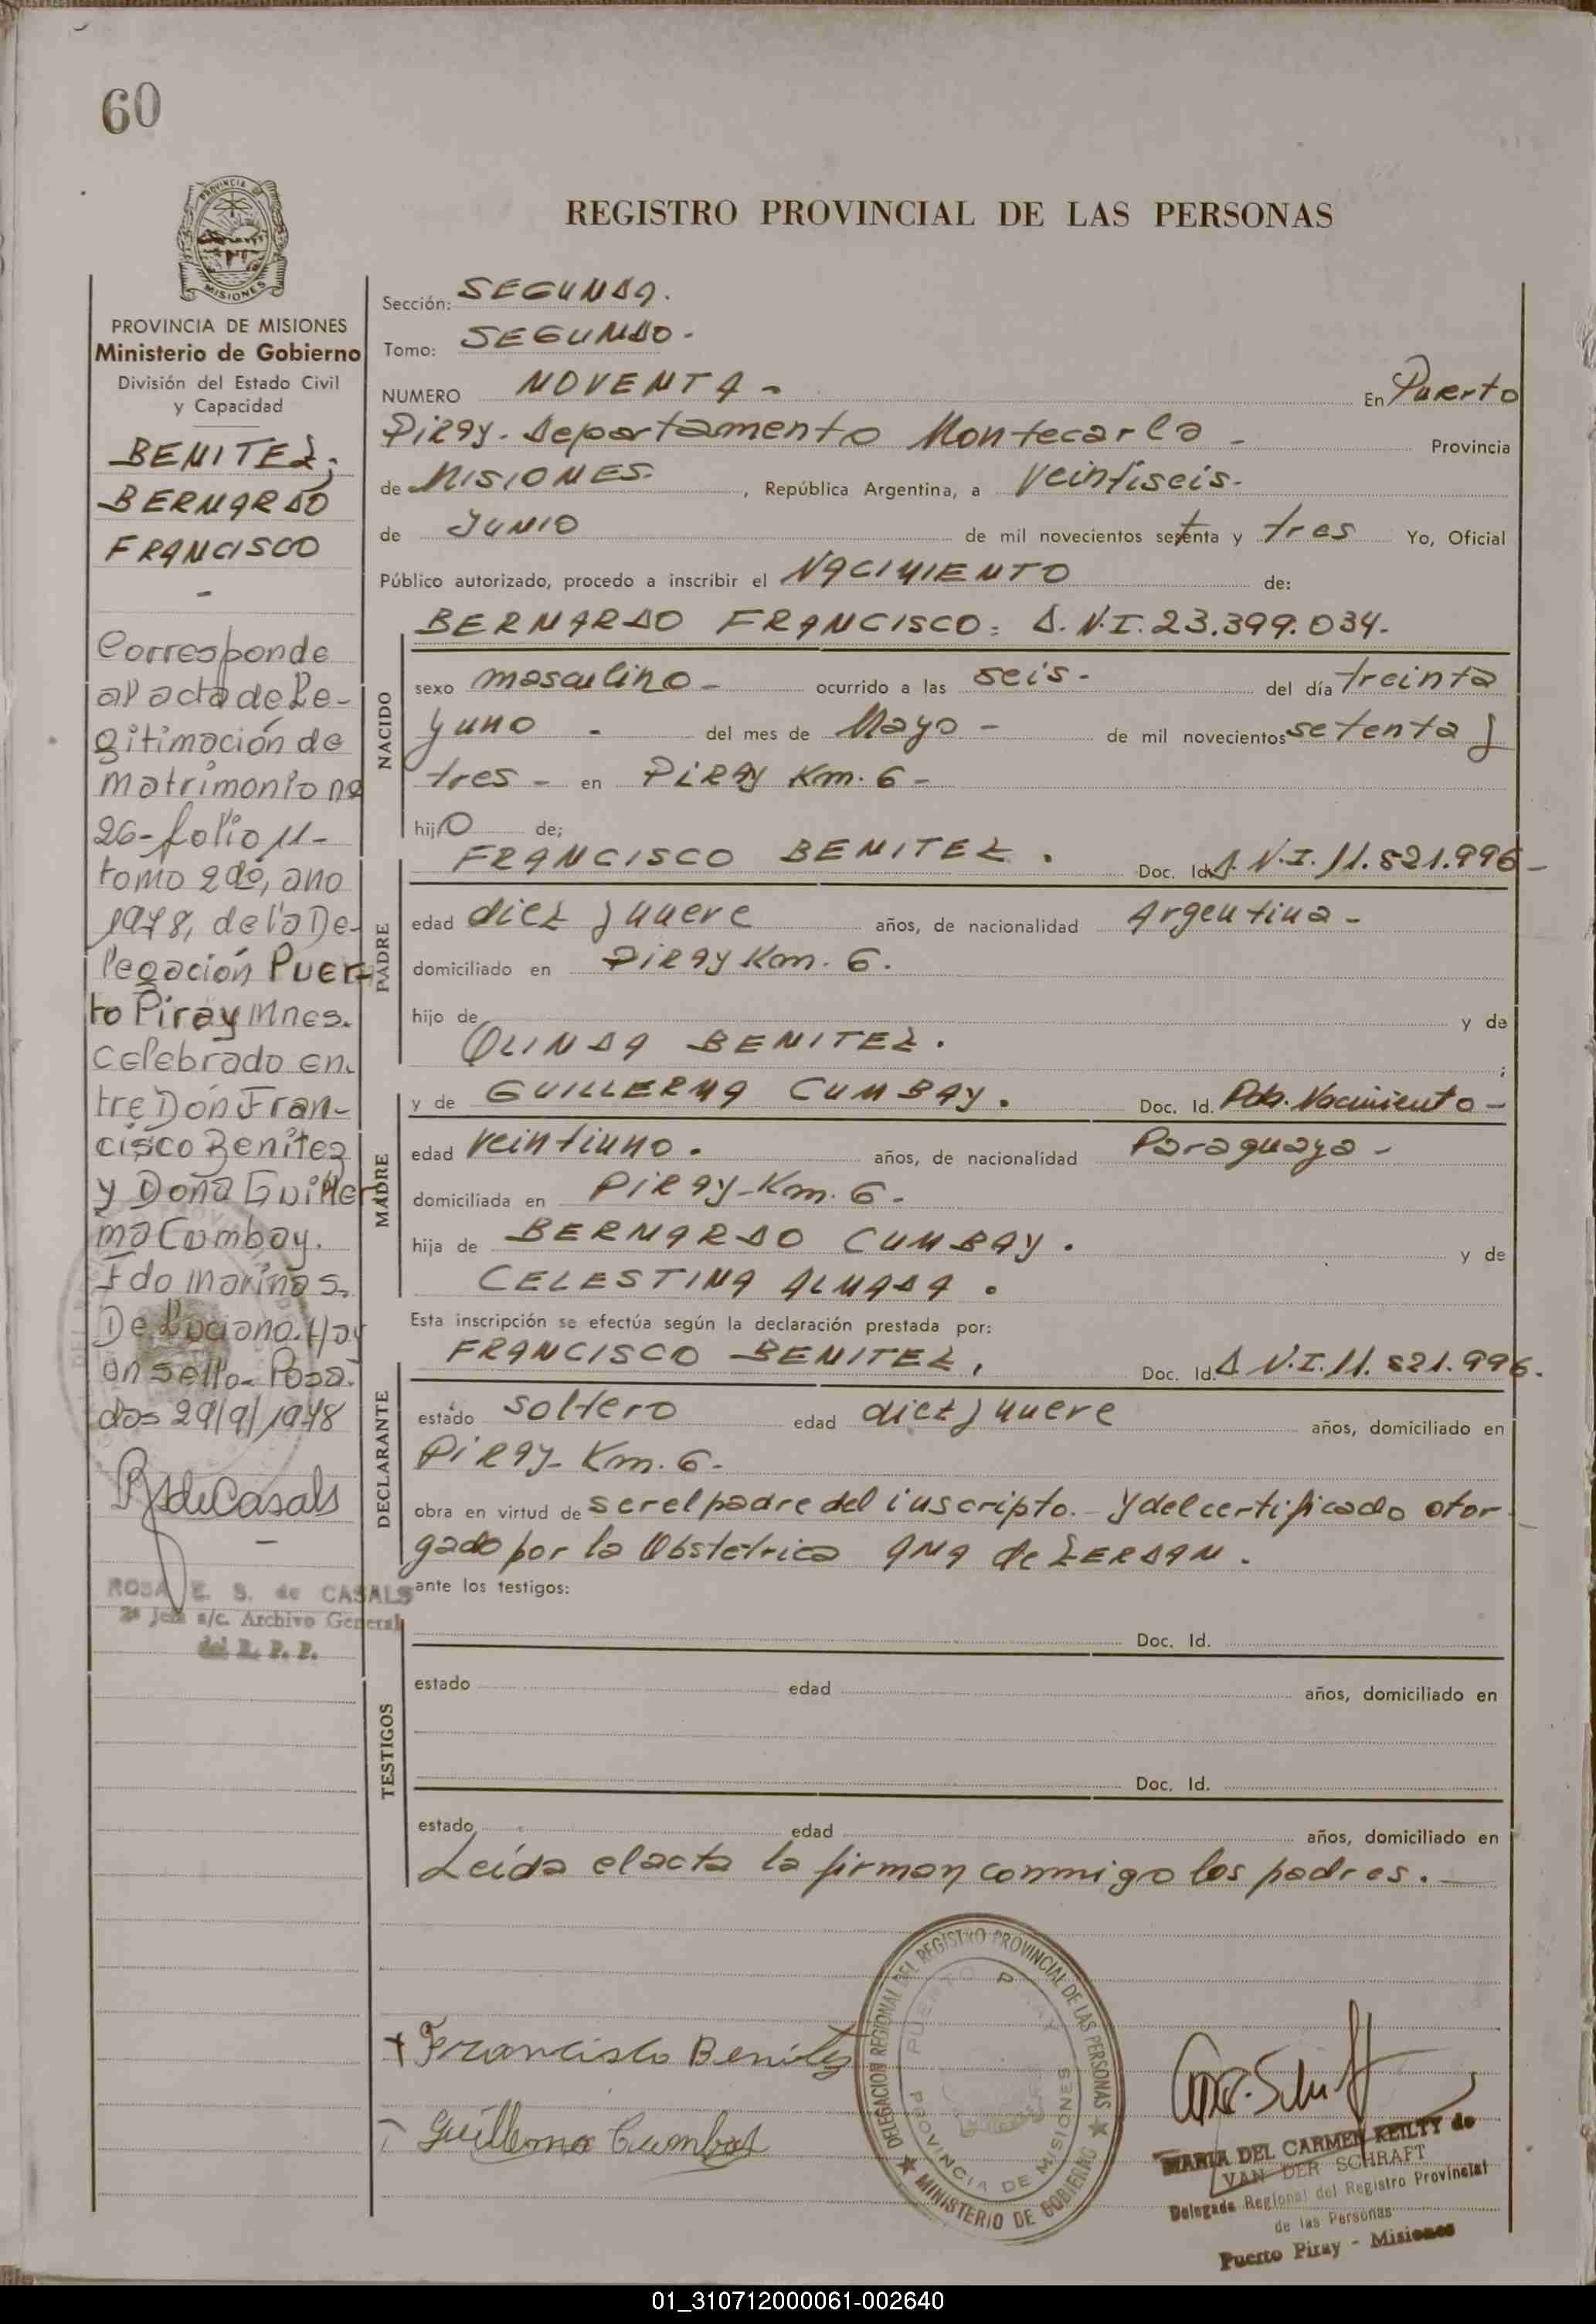 60
PROVINCIA DE
MISIONES
REGISTRO PROVINCIAL DE LAS PERSONAS
PROVINCIA DE MISIONES
Ministerio de Gobierno
División del Estado Civil
y Capacidad
BENITEZ;
BERNARDO
FRANCISCO
-
Corresponde
al acta de Le-
gitimación de
matrimonio no
26-folio 11-
tomo 2do, ano
1978, de la De-
legación Puer-
to Piray Mnes.
Celebrado en-
tre Don Fran-
cisco Benitez
y Doña Guiller
ma Cumbay.
Fdo Marina S.
De Luciano. Hay
un sello- Posa-
das 29/9/1978
RSdeCasals
-
ROSA E. S. de CASALS
2ª Jefa a/c. Archivo General
del R. P. P.
Sección: SEGUNDA.
Tomo: SEGUNDO-
NUMERO NOVENTA- En Puerto
Piray- Departamento Montecarlo- Provincia
de MISIONES- , República Argentina, a veintiseis-
de JUNIO de mil novecientos setenta y tres Yo, Oficial
Público autorizado, procedo a inscribir el NACIMIENTO de:
BERNARDO FRANCISCO: D.N.I.23.399.034-
NACIDO
sexo masculino- ocurrido a las seis- del día treinta
y uno - del mes de Mayo- de mil novecientos setenta y
tres - en PIRAY Km. 6-
hijo de;
FRANCISCO BENITEZ. Doc. Id. D.N.I. 11.821.996-
PADRE
edad diez y nueve años, de nacionalidad Argentina-
domiciliado en PIRAY Km. 6.
hijo de y de
OLINDA BENITEZ.
;
y de GUILLERMA CUMBAY. Doc. Id. Pda. Nacimiento-
MADRE
edad veintiuno. años, de nacionalidad Paraguaya-
domiciliada en PIRAY-Km. 6-
hija de BERNARDO CUMBAY. y de
CELESTINA ALMADA.
Esta inscripción se efectúa según la declaración prestada por:
FRANCISCO BENITEZ. Doc. Id. D.N.I. 11.821.996.
DECLARANTE
estado soltero edad diez y nueve años, domiciliado en
PIRAY- Km. 6-
obra en virtud de ser el padre del inscripto.- Y del certificado otor-
gado por la Obstetrica ANA de ZERDAN.
ante los testigos:
Doc. Id.
TESTIGOS
estado edad años, domiciliado en
Doc. Id.
estado edad años, domiciliado en
Leída el acta la firman conmigo los padres.-
Francisco Benitez
Guillerma Cumbay
DELEGACION REGIONAL DEL REGISTRO PROVINCIAL DE LAS PERSONAS
MINISTERIO DE GOBIERNO
PUERTO PIRAY
PROVINCIA DE MISIONES
MARIA DEL CARMEN KEILTY de
VAN DER SCHRAFT
Delegada Regional del Registro Provincial
de las Personas
Puerto Piray - Misiones
01_310712000061-002640